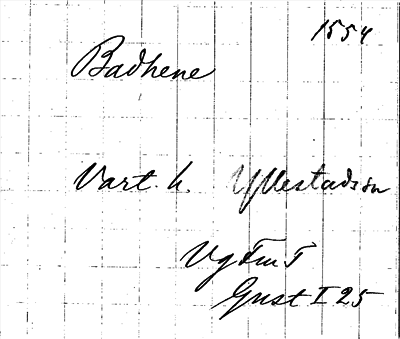 1554
Badhene
Vart. h. Yllestads sn
Vg Fm T
Gust I 25